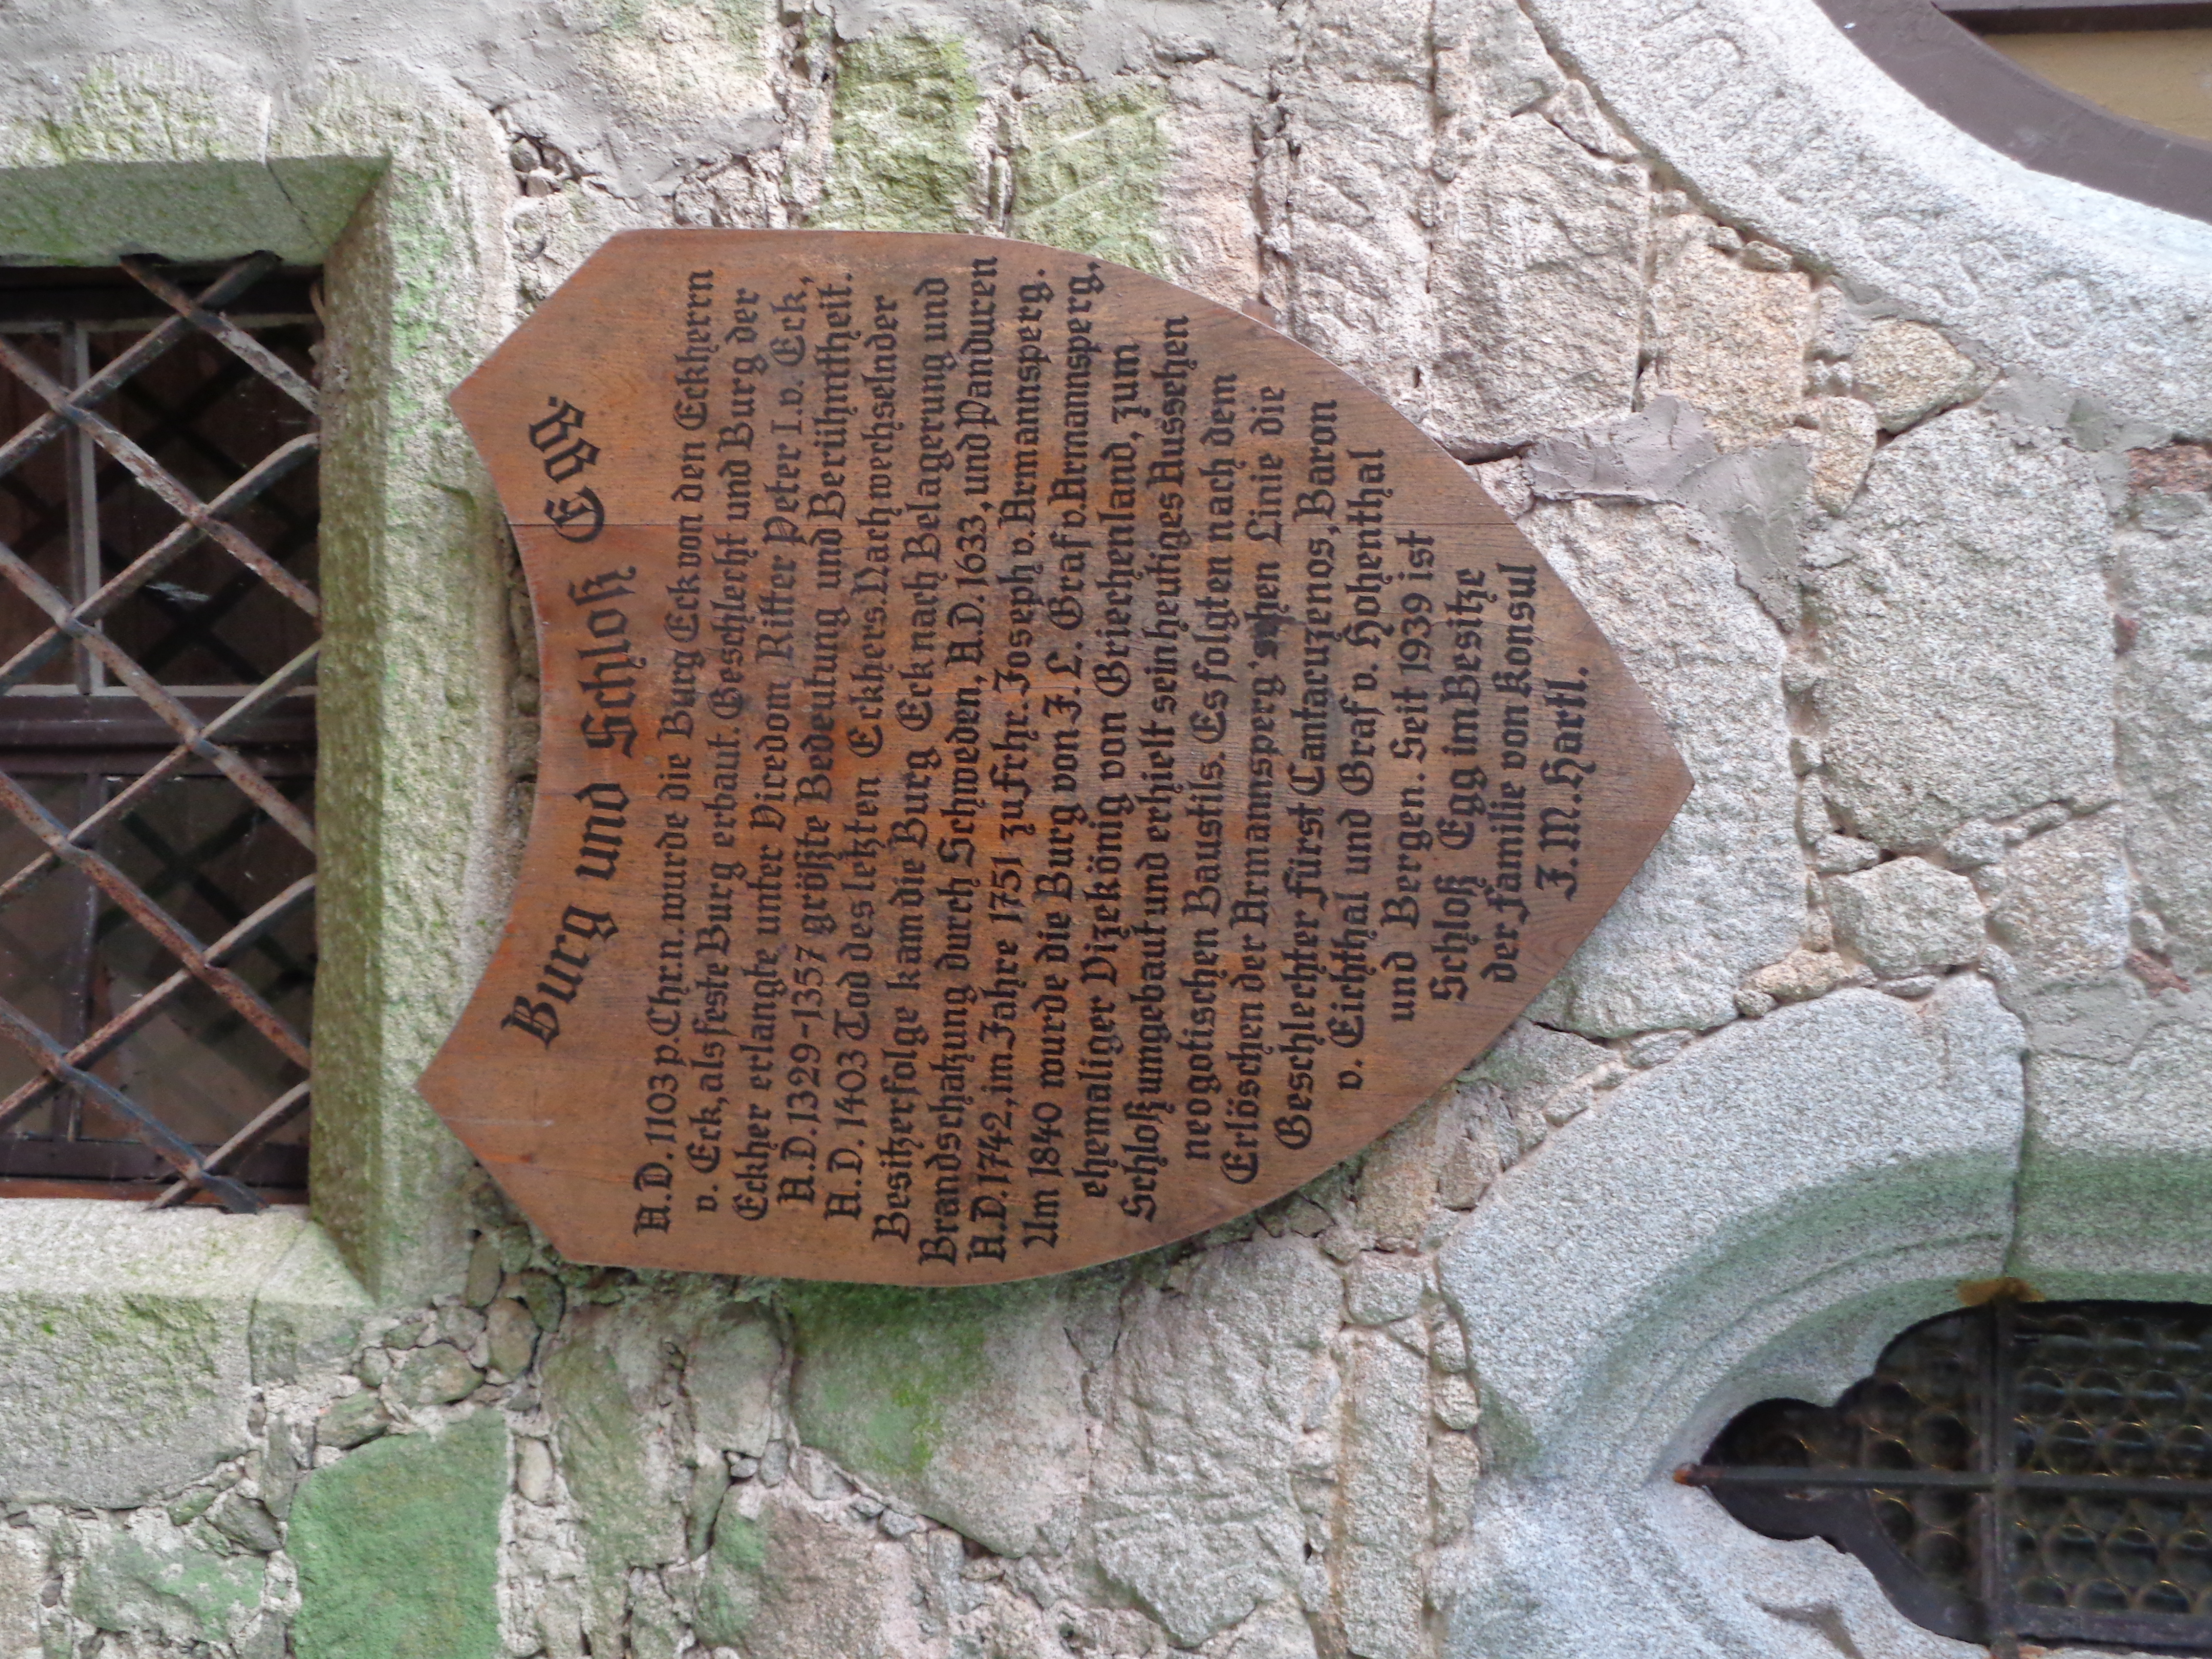 Burg und Schloß Egg.
A.D. 1103 p. Chr.n. wurde die Burg Eck von den Eckhern
v. Eck, als feste Burg erbaut. Geschlecht und Burg der
Eckher erlangte unter Vicedom Ritter Peter I. v. Eck,
A.D. 1329-1357 größte Bedeutung und Berühmtheit.
A.D. 1403 Tod des letzten Eckhers. Nach wechselnder
Besitzerfolge kam die Burg Eck nach Belagerung und
Brandschatzung durch Schweden, A.D. 1633, und Panduren
A.D. 1742, im Jahre 1751 zu Frhr. Joseph v. Armannsperg.
Um 1840 wurde die Burg von J. L. Graf v. Armannsperg,
ehemaliger Vizekönig von Griechenland, zum
Schloß umgebaut und erhielt sein heutiges Aussehen
neogotischen Baustils. Es folgten nach dem
Erlöschen der Armannsperg'schen Linie die
Geschlechter Fürst Cantacuzenos, Baron
v. Eichthal und Graf v. Hohenthal
und Bergen. Seit 1939 ist
Schloß Egg im Besitze
der Familie von Konsul
J. M. Hartl.